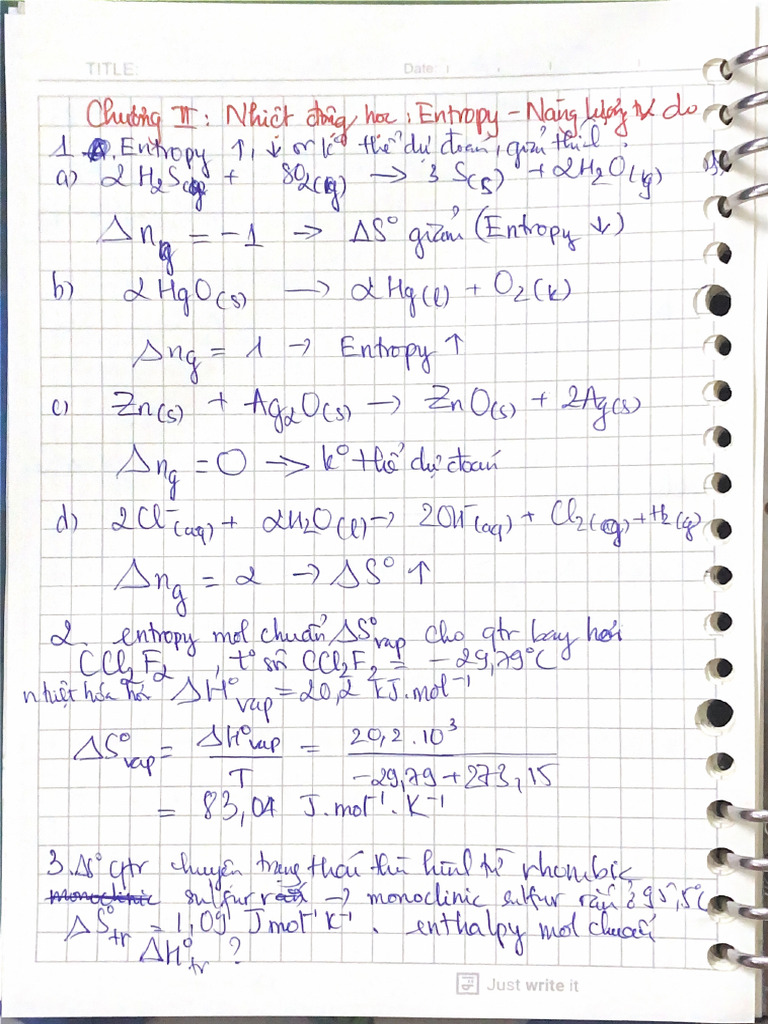 TITLE:
Date:
Chương II: Nhiệt động học: Entropy - Năng lượng tự do
1. Entropy ↑, ↓ or k° thể dự đoán, giải thích
a) 2H₂S(g) + SO₂(g) → 3 S(s) + 2H₂O(g)
Δn_g = -1 → ΔS° giảm (Entropy ↓)
b) 2HgO(s) → 2Hg(l) + O₂(k)
Δn_g = 1 → Entropy ↑
c) Zn(s) + Ag₂O(s) → ZnO(s) + 2Ag(s)
Δn_g = 0 → k° thể dự đoán
d) 2Cl⁻(aq) + 2H₂O(l) → 2OH⁻(aq) + Cl₂(g) + H₂(g)
Δn_g = 2 → ΔS° ↑
2. entropy mol chuẩn ΔS°vap cho qtr bay hơi
CCl₂F₂, t° sôi CCl₂F₂ = -29,79°C
nhiệt hóa hơi ΔH°vap = 20,2 kJ.mol⁻¹
ΔS°vap = ΔH°vap / T = 20,2.10³ / (-29,79 + 273,15)
= 83,04 J.mol⁻¹.K⁻¹
3. ΔS° qtr chuyển trạng thái thù hình từ rhombic
sulfur rắn → monoclinic sulfur rắn ở 95,5°C
ΔS°tr = 1,09 Jmol⁻¹K⁻¹. enthalpy mol chuẩn
ΔH°tr ?
Just write it